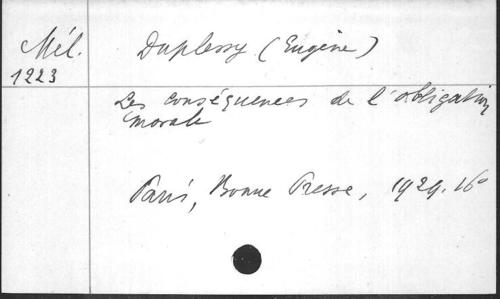 Mél.
1223
Duplessy (Eugène)
Les conséquences de l'obligation
morale
Paris, Bonne Presse, 1929. 16°